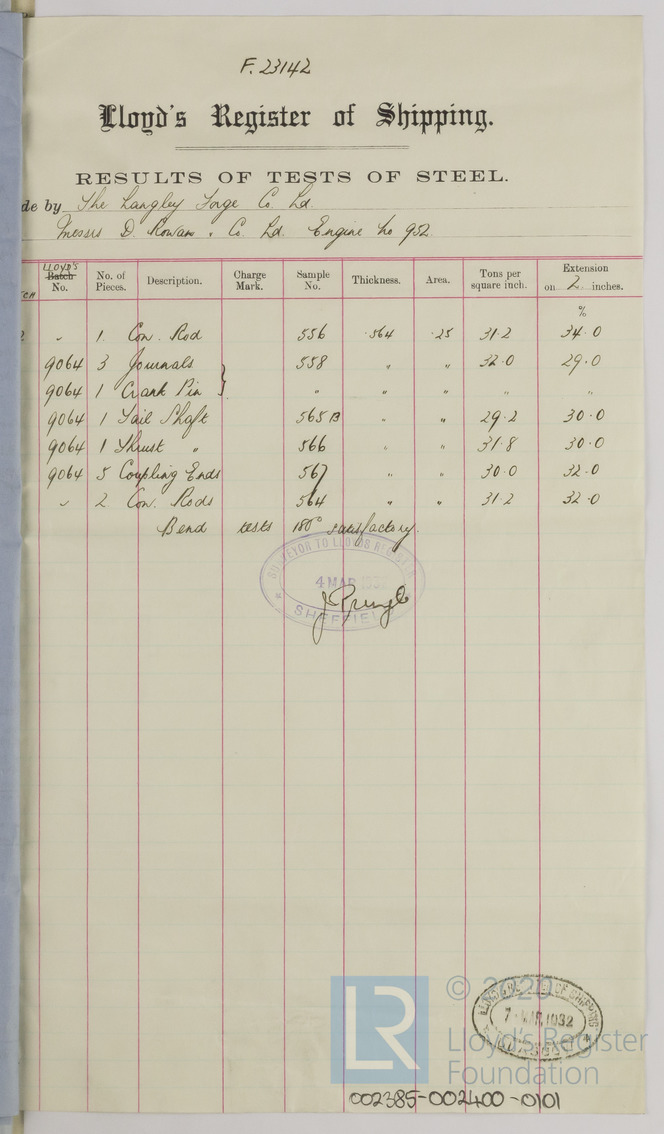 F. 23142
Lloyd's Register of Shipping.
RESULTS OF TESTS OF STEEL.
de by The Langley Forge Co. Ld.
Messrs D. Rowan & Co. Ld. Engine No 952
LLOYD'S Batch No. No. of Pieces. Description. Charge Mark. Sample No. Thickness. Area. Tons per square inch. Extension on 2 inches.
CH
%
2 " 1 Con. Rod 556 .564 .25 31.2 34.0
9064 3 Journals } 558 " " 32.0 29.0
9064 1 Crank Pin " " " " "
9064 1 Tail Shaft 565B " " 29.2 30.0
9064 1 Thrust " 566 " " 31.8 30.0
9064 5 Coupling Ends 567 " " 30.0 32.0
" 2 Con. Rods 564 " " 31.2 32.0
Bend tests 180° satisfactory.
SURVEYOR TO LLOYDS REGISTER
4 MAR 1932
J Pringle
SHEFFIELD
LLOYD'S REGISTER OF SHIPPING
7 - MAR 1932
LR
© 2020
Lloyd's Register
Foundation
002385-002400-0101